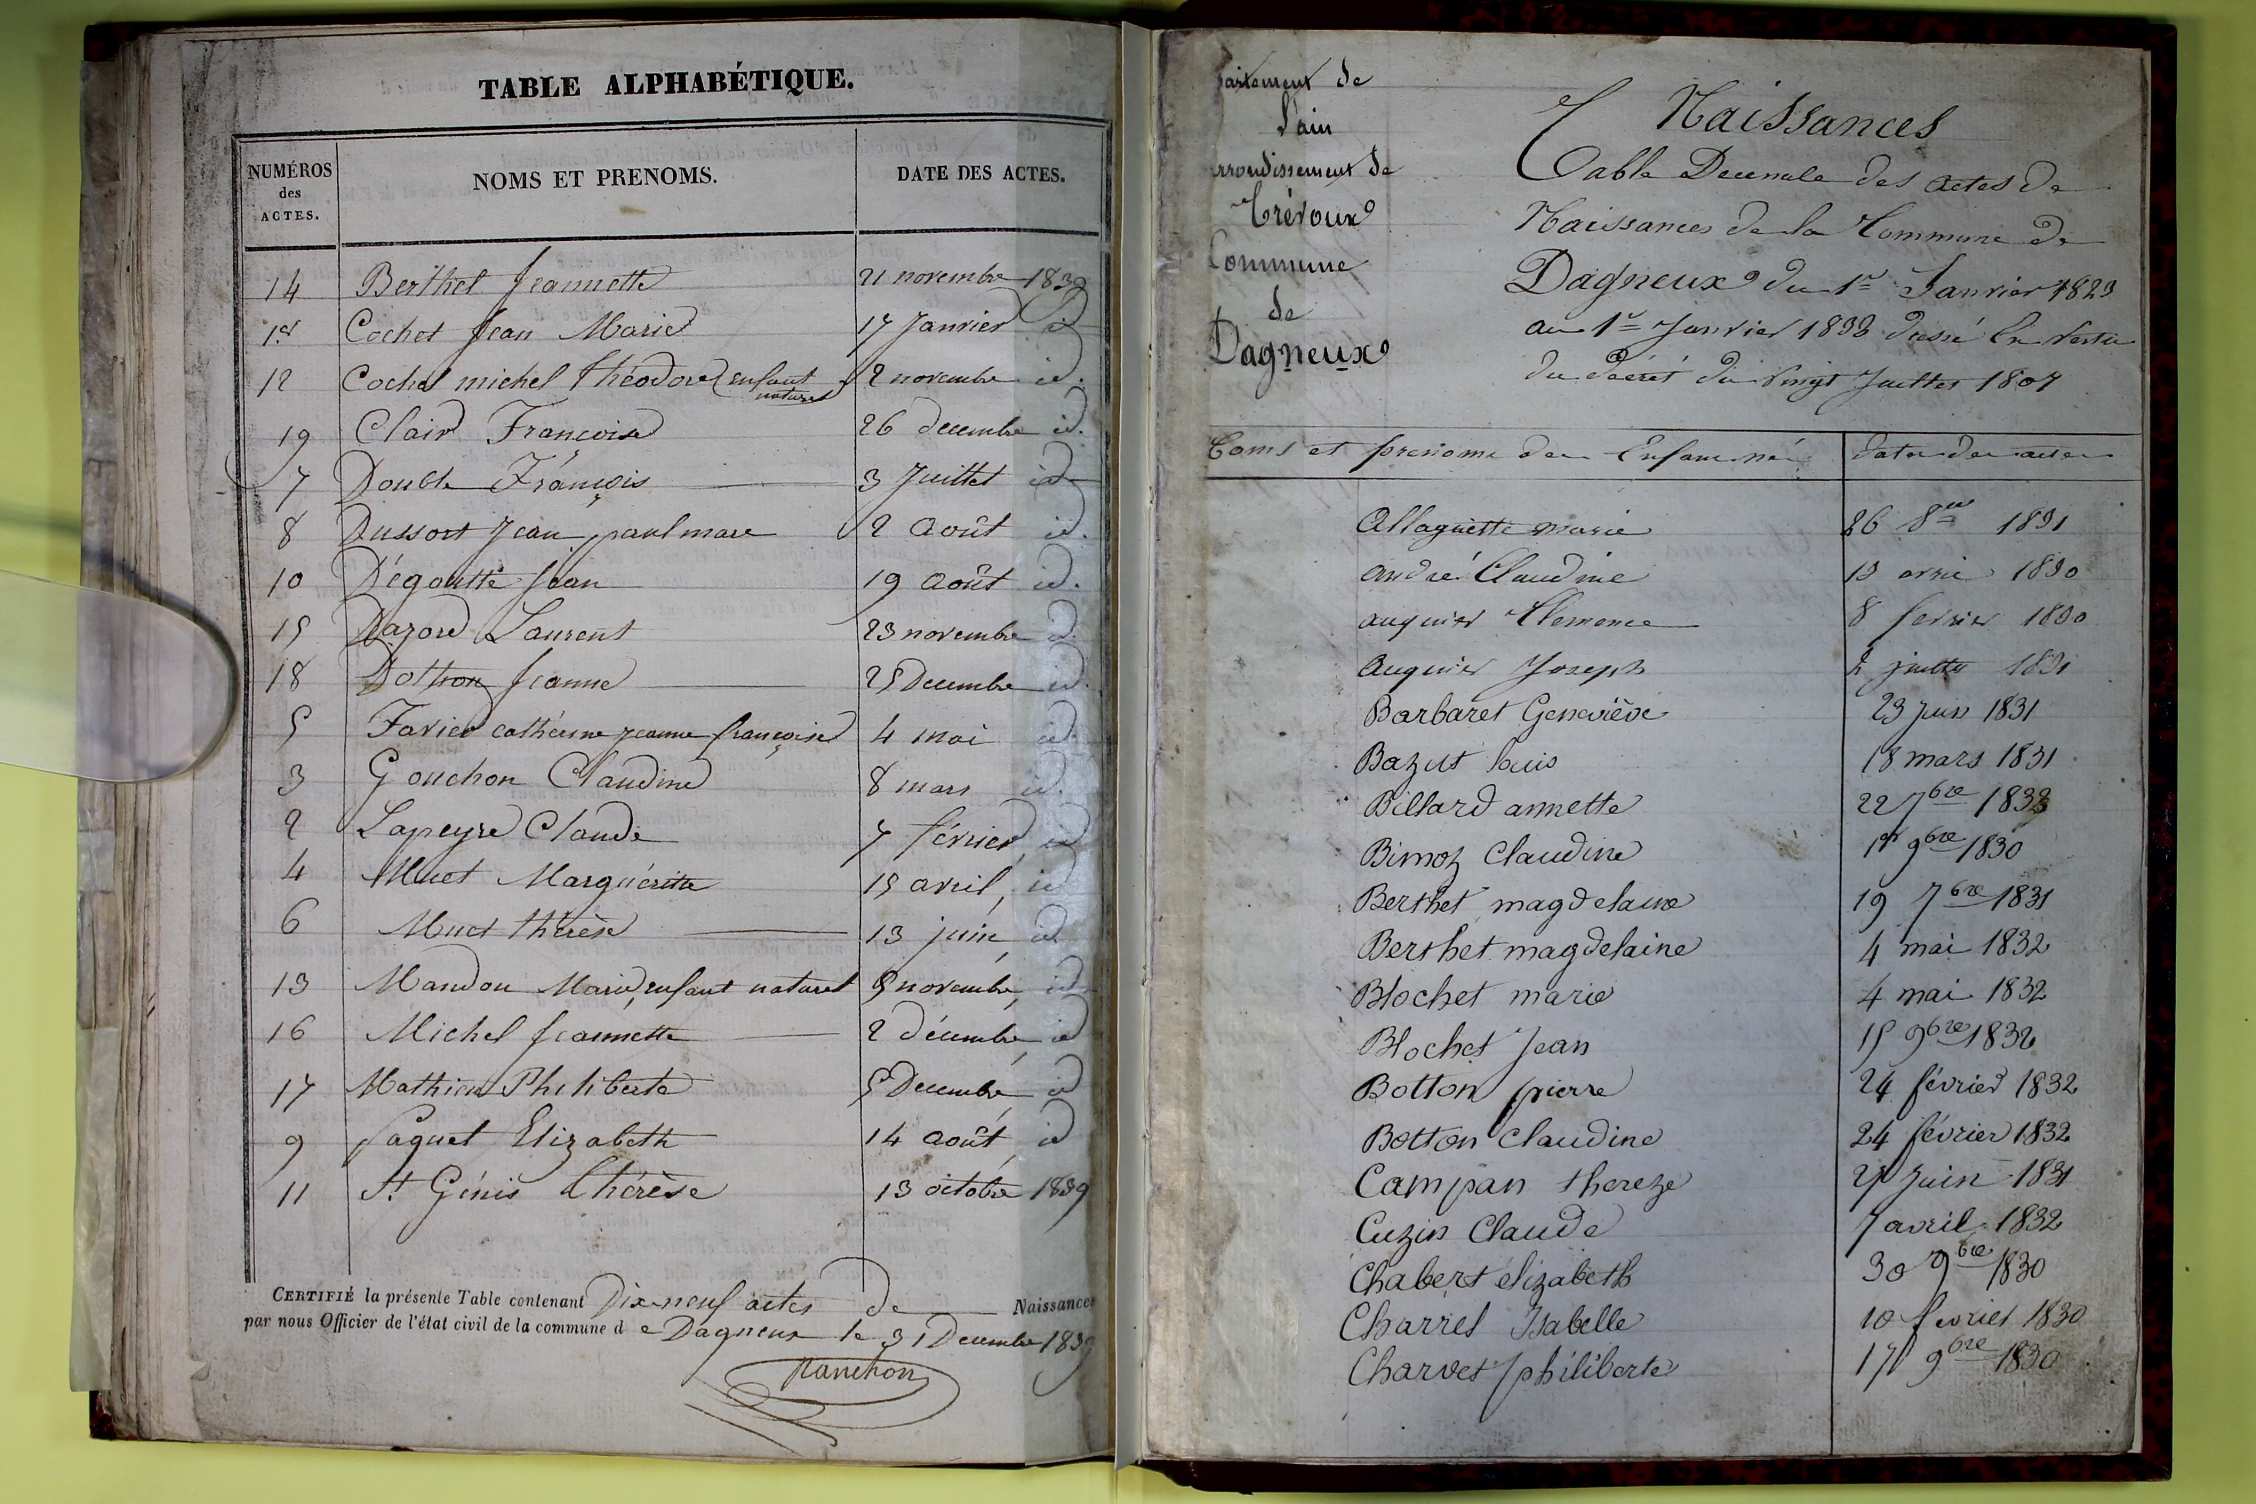 TABLE ALPHABÉTIQUE.
NUMÉROS des ACTES. NOMS ET PRENOMS. DATE DES ACTES.
14 Berthet Jeannette 21 novembre 1839
1er Cochet Jean Marie 17 Janvier id
12 Cochet michel théodore enfant naturel 2 novembre id.
19 Clair Françoise 26 decembre id.
7 Double François 3 Juillet id
8 Dussort Jean paul marc 2 août id.
10 Dégoutte Jean 19 août id.
15 Dazord Laurent 23 novembre id
18 Dotton Jeanne 25 Decembre id.
5 Favier cathérine jeanne françoise 4 mai id
3 Gouchon Claudine 8 mars id.
2 Lapeyre Claude 7 février, id
4 Muet Marguéritte 15 avril, id
6 Muet thérèse 13 juin, id
13 Mandon Marie, enfant naturel 9 novembre, id
16 Michel Jeannette 2 décembre, id
17 Mathieu Philiberte 5 Decembre, id
9 Paquet Elizabeth 14 août, id
11 St Génis thérèse 13 octobre 1839
CERTIFIÉ la présente Table contenant Dix-neuf actes de Naissances
par nous Officier de l'état civil de la commune d e Dagneux le 31 Decembre 1839
Ranchon
partement de
l'ain
arrondissement de
Trévoux
Commune
de
Dagneux
Naissances
Table Decennale des actes de
Naissances de la Commune de
Dagneux du 1er Janvier 1823
au 1er Janvier 1833 dressé En vertu
du décrét du vingt Juillet 1807
Noms et prenoms des Enfans nés dates des actes
Allaguette marie 26 8bre 1831
andré Claudine 13 avril 1830
auguier Clemence 8 fevrier 1830
auguier Joseph 2 juillet 1831
Barbaret Geneviève 23 juin 1831
Bazut louis 18 mars 1831
Billard annette 22 7bre 1832
Bimoz claudine 1er 9bre 1830
Berthet magdelaine 19 7bre 1831
Berthet magdelaine 4 mai 1832
Blochet marie 4 mai 1832
Blochet Jean 15 9bre 1832
Botton pierre 24 février 1832
Botton claudine 24 février 1832
Campan thereze 25 Juin 1831
Cuzin Claude 7 avril 1832
Chabert élizabeth 30 9bre 1830
Charrel Isabelle 10 fevrier 1830
Charvet philiberte 17 9bre 1830